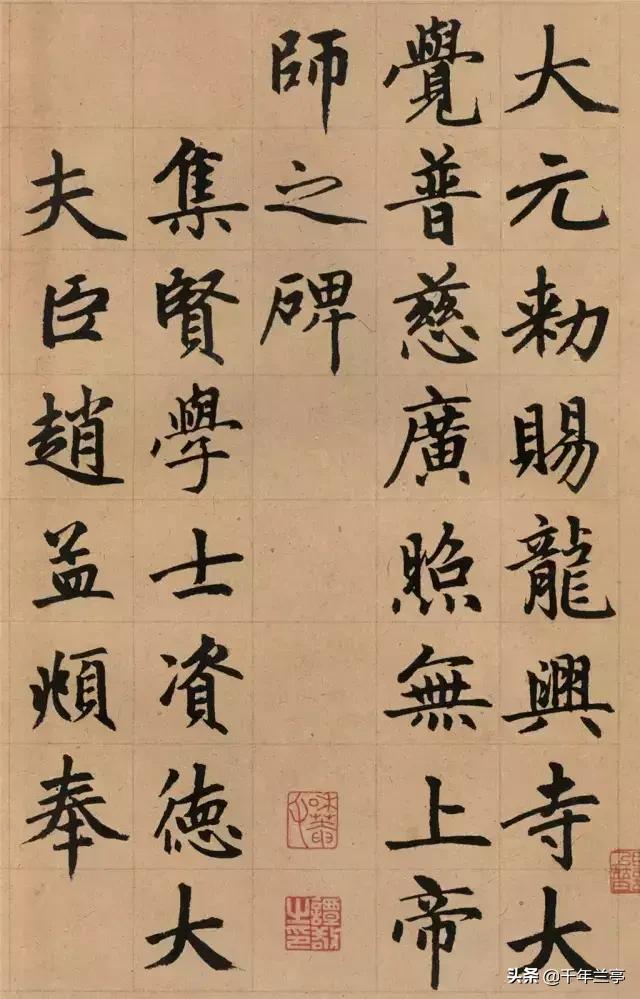 大元勅賜龍興寺大
覺普慈廣照無上帝
師之碑
集賢學士資德大
夫臣趙孟頫奉
头条 @千年兰亭